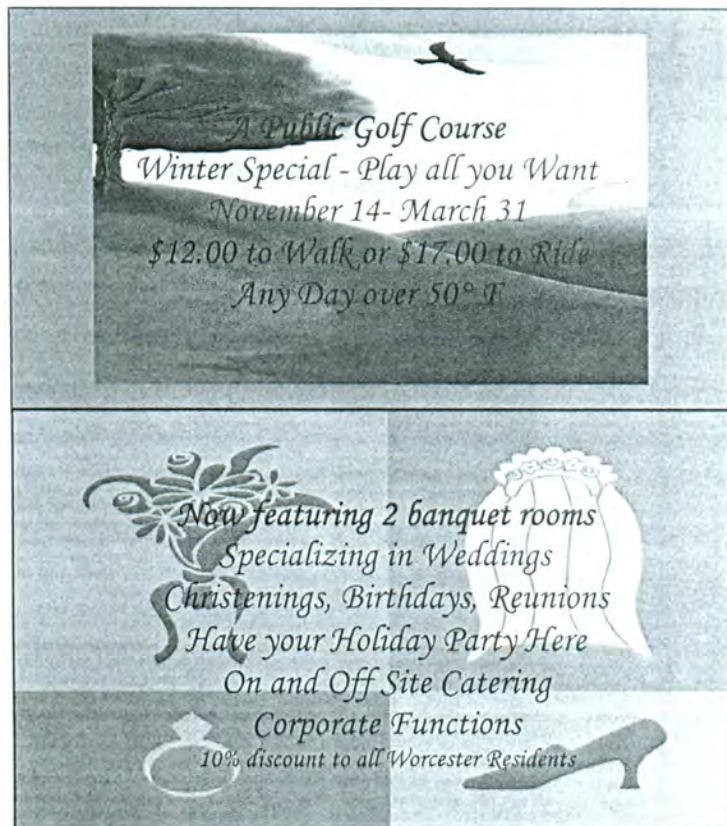 A Public Golf Course
Winter Special - Play all you Want
November 14- March 31
$12.00 to Walk or $17.00 to Ride
Any Day over 50° F
Now featuring 2 banquet rooms
Specializing in Weddings
Christenings, Birthdays, Reunions
Have your Holiday Party Here
On and Off Site Catering
Corporate Functions
10% discount to all Worcester Residents